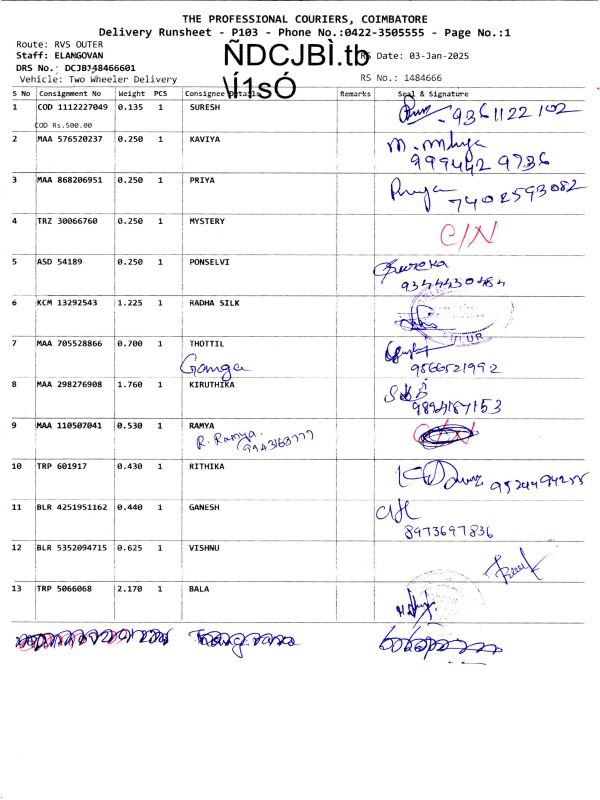 THE PROFESSIONAL COURIERS, COIMBATORE
Delivery Runsheet - P103 - Phone No.:0422-3505555 - Page No.:1
Route: RVS OUTER
Staff: ELANGOVAN
ÑDCJBÌ.tb
RS Date: 03-Jan-2025
DRS No.: DCJBJ48466601
Vehicle: Two Wheeler Delivery
\Í1sÓ
RS No.: 1484666
S No Consignment No Weight PCS Consignee Details Remarks Seal & Signature
1 COD 1112227049 0.135 1 SURESH 9361122102
COD Rs.500.00
2 MAA 576520237 0.250 1 KAVIYA
999442 9736
3 MAA 868206951 0.250 1 PRIYA Priya
7402593082
4 TRZ 30066760 0.250 1 MYSTERY C/N
5 ASD 54189 0.250 1 PONSELVI
9344430484
6 KCM 13292543 1.225 1 RADHA SILK
7 MAA 705528866 0.700 1 THOTTIL
Ganga 9566521992
8 MAA 298276908 1.760 1 KIRUTHIKA
9894187153
9 MAA 110507041 0.530 1 RAMYA
R. Ramya.
9943168777
10 TRP 601917 0.430 1 RITHIKA
11 BLR 4251951162 0.440 1 GANESH
8973697836
12 BLR 5352094715 0.625 1 VISHNU
13 TRP 5066068 2.170 1 BALA